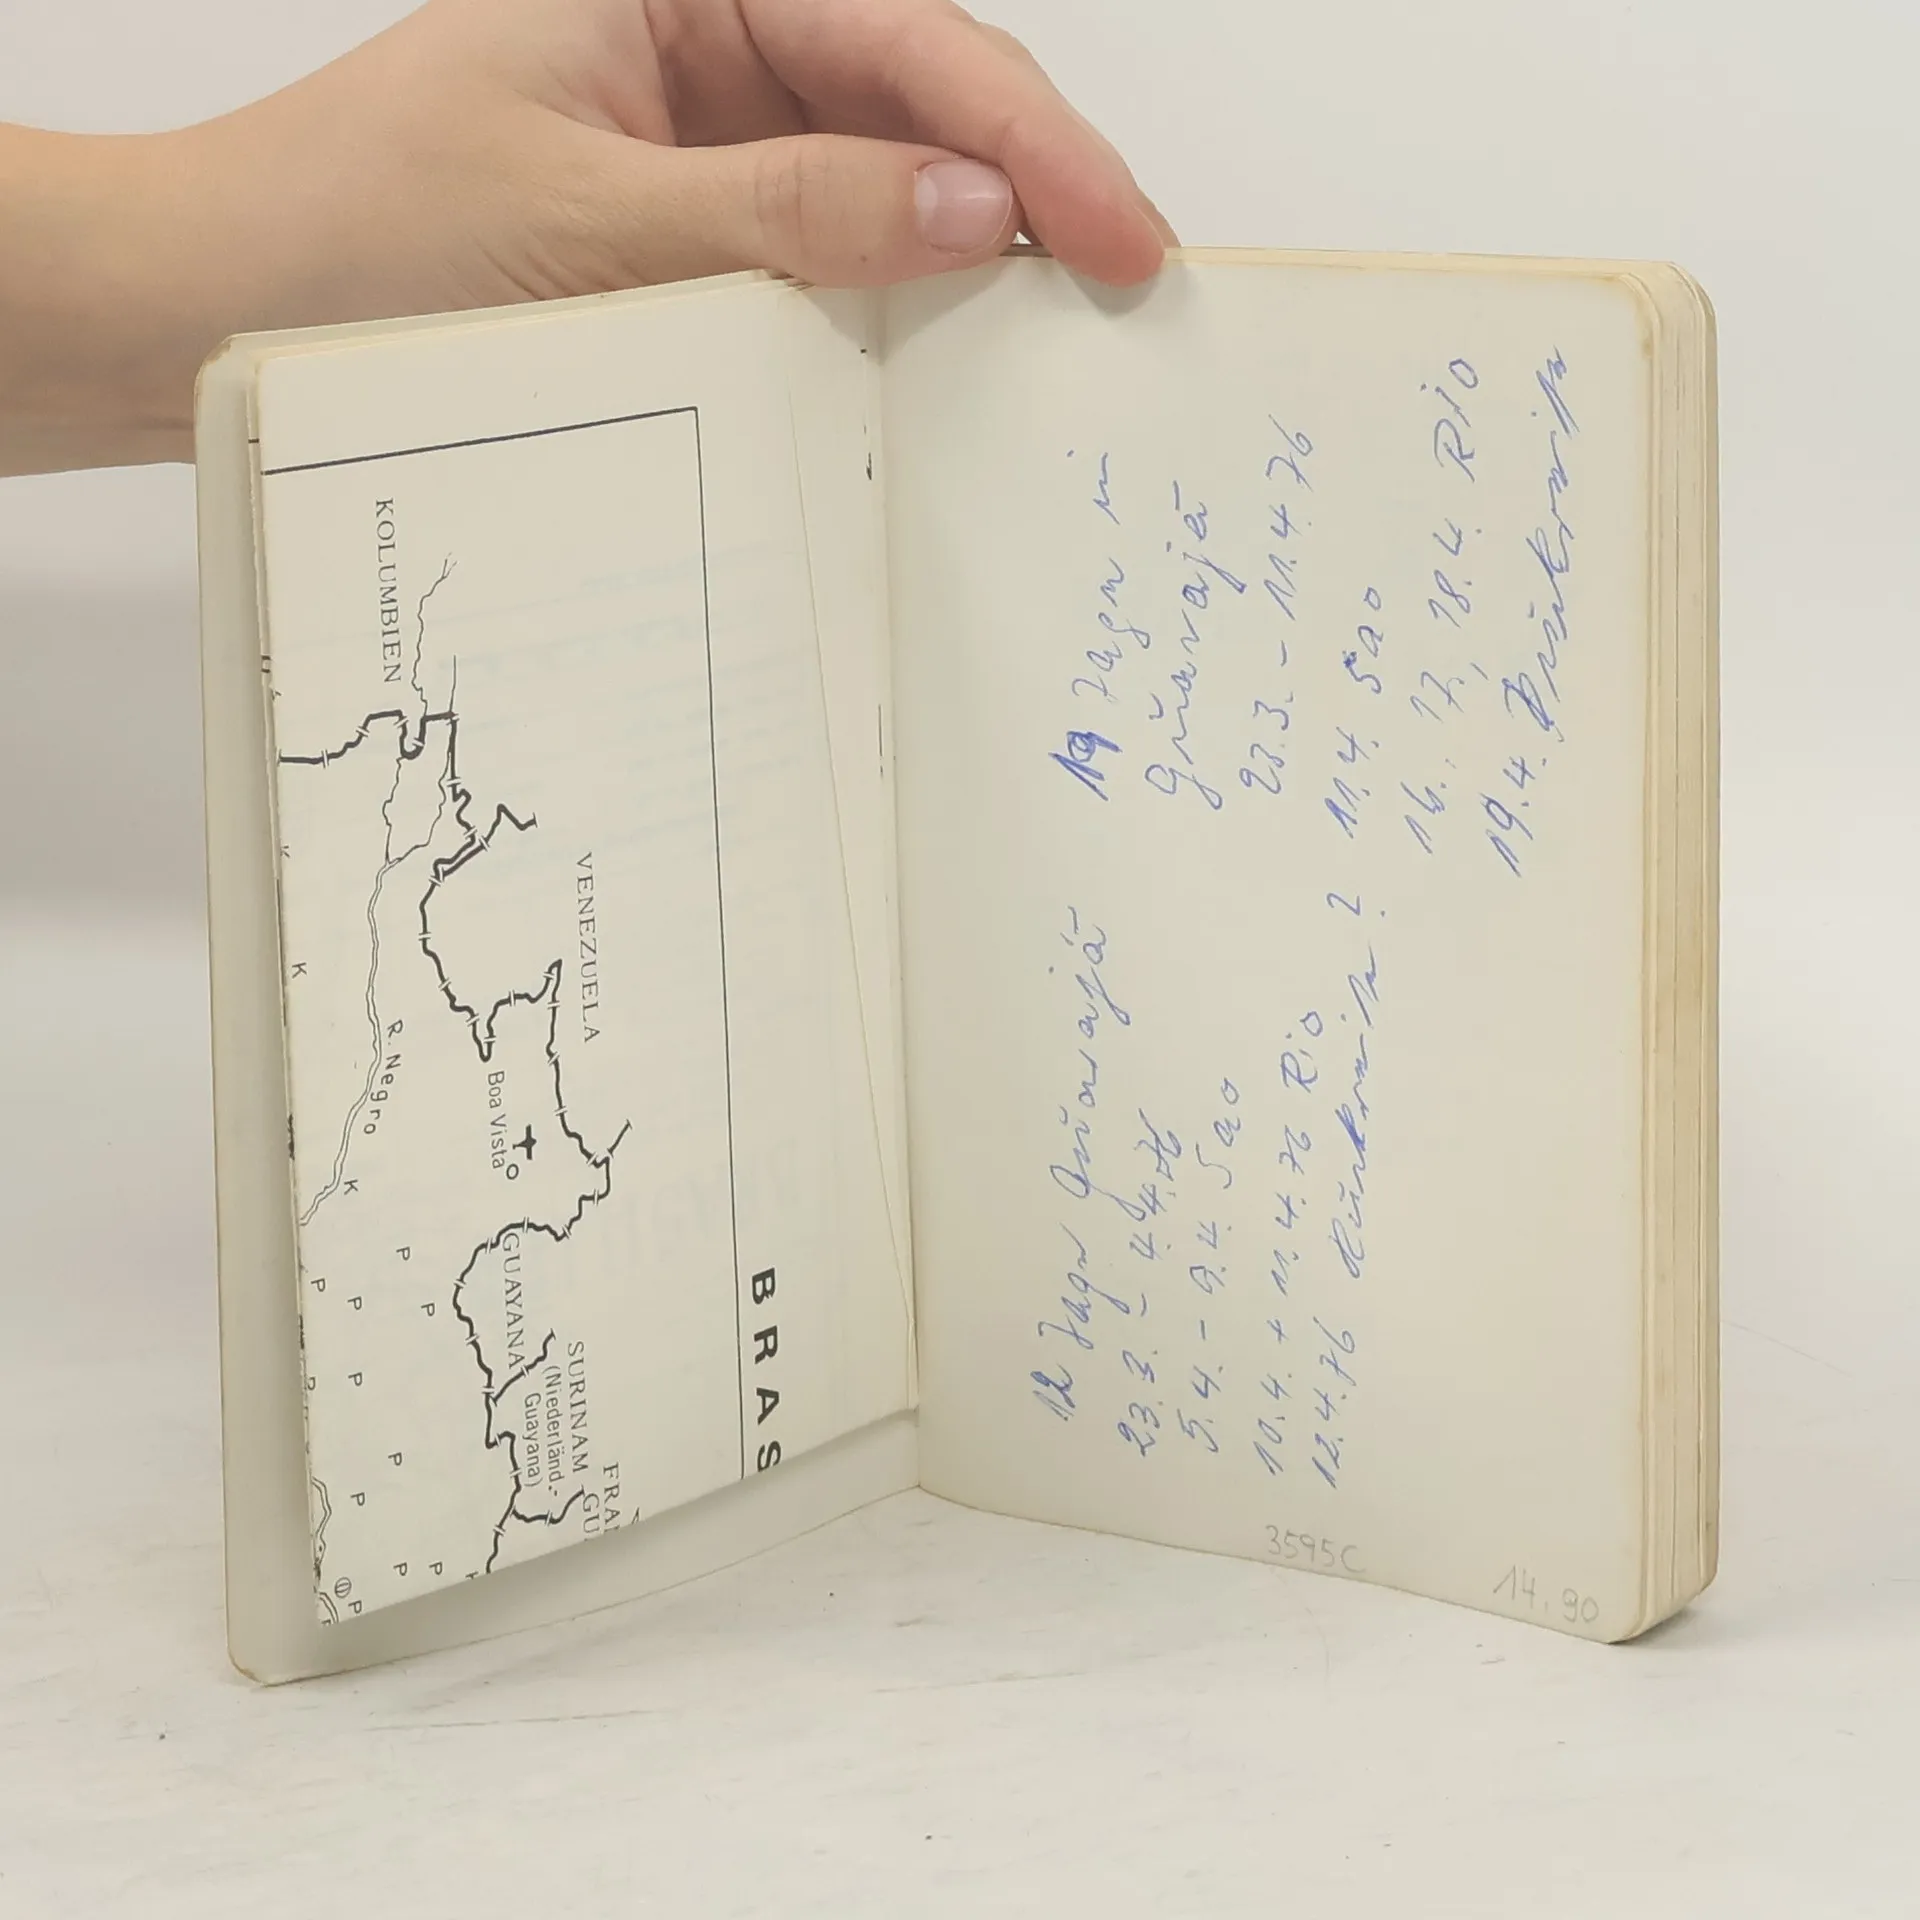 KOLUMBIEN
VENEZUELA
R. Negro
Boa Vista
GUAYANA
SURINAM
(Niederländ.-
Guayana)
FRA
GU
BRAS
K
K
K
P
P
P
P
P
P
P
P
P
P
P
12 Tage Guarajá
23.3. - 4.4.76
5.4. - 9.4. Sao
10.4. + 11.4.76 Rio
12.4.76 Rückreise ?
19 Tagen in
Guarajá
23.3. - 11.4.76
11.4. Sao
16., 17., 18.4. Rio
19.4. Rückreise
3595C
14.90